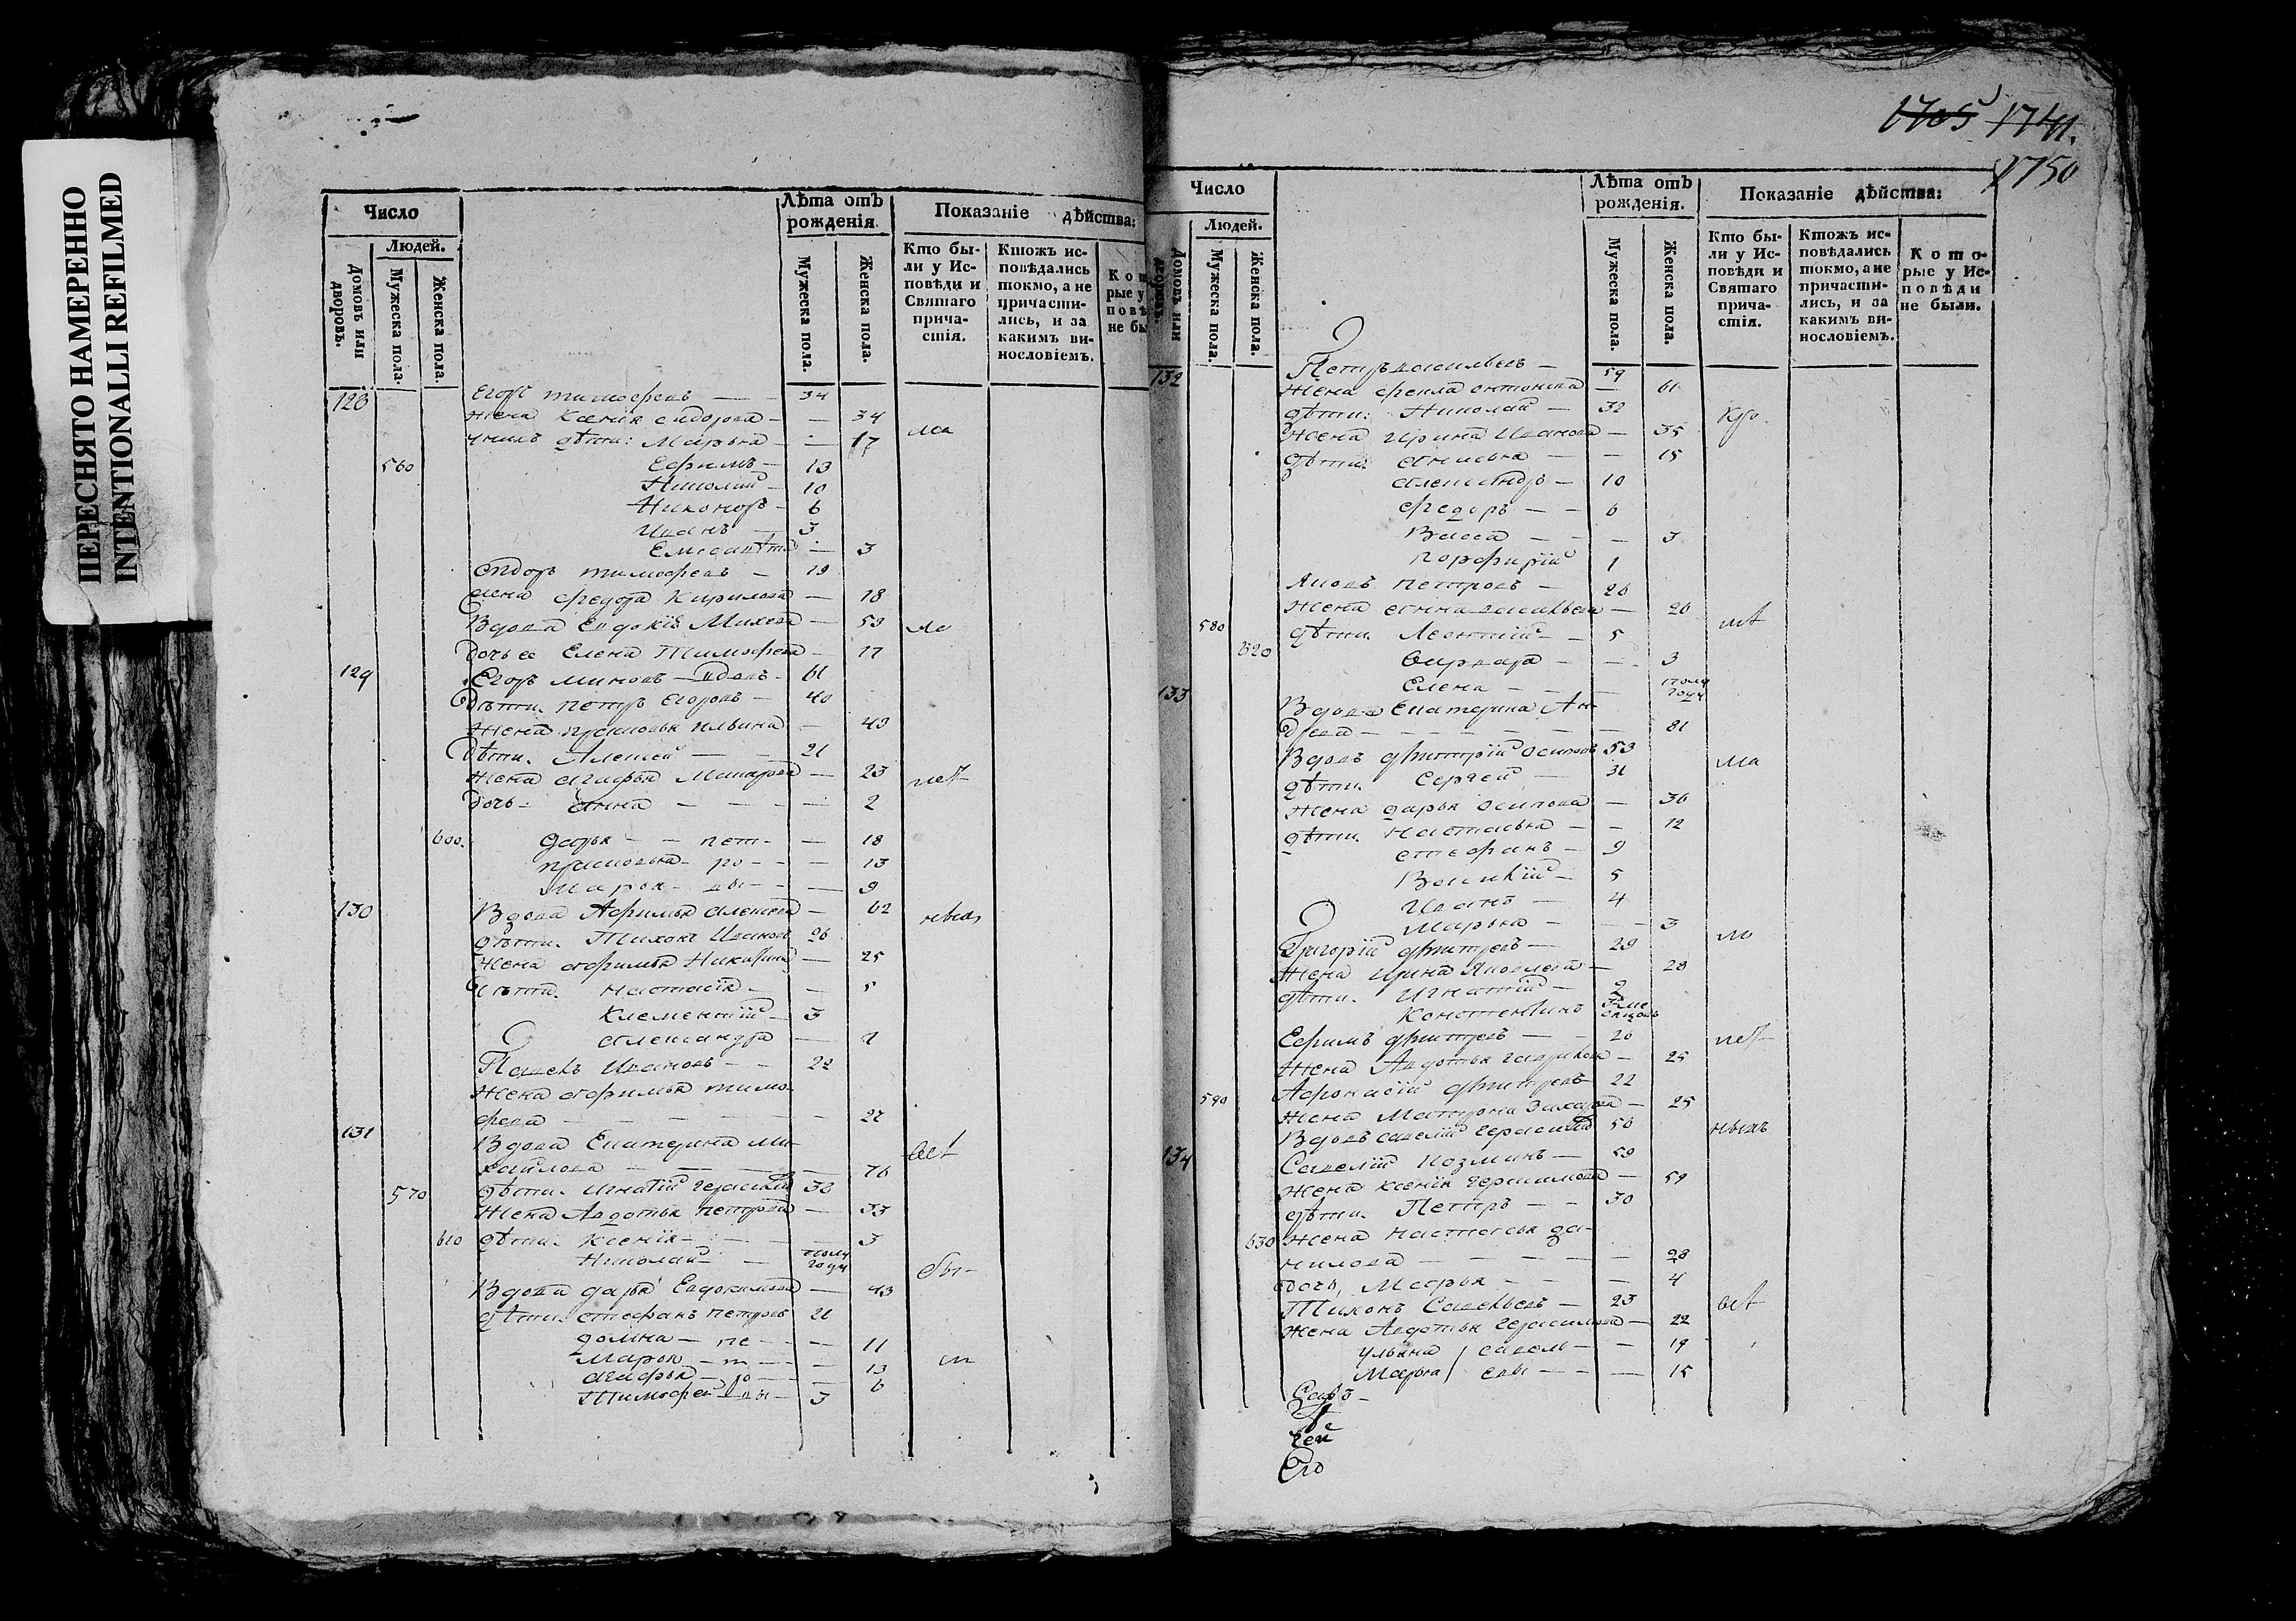 ПЕРЕСНЯТО НАМЕРЕННО
INTENTIONALLI REFILMED
Число
Людей.
Домовъ или дворовъ.
Мужеска пола.
Женска пола.
Лѣта отъ рожденія.
Мужеска пола.
Женска пола.
Показаніе дѣйства:
Кто были у Исповѣди и Святаго причастія.
Ктожъ исповѣдались токмо, а не причастились, и за какимъ винословіемъ.
128 Егоръ Тимофеевъ — 34
Жена Ксенія Сидорова — 34
У нихъ дѣти: Марья — 17
560 Ефимъ — 13
Николай — 10
Никоноръ — 6
Иванъ — 3
Елисаветъ — 3
Тимофеевъ — 19
Жена Федора Кирилова — 18
Вдова Евдокія Михеева — 59
Дочь ее Елена Тимофеева — 17
129 Егоръ Миновъ вдовъ 61
Дѣти. Петръ Егоровъ — 40
Жена Прасковья Ильина — 49
Дѣти. Алексей — 21
Жена Агафья Макарова — 23
Дочь — Анна — 2
600. Дарья — пет- — 18
Прасковья — ро- — 13
Марья — вы — 9
130 Вдова Афимья Алексеева — 62
Дѣти. Тихонъ Ивановъ 26
Жена Афимья Никитина — 25
Дѣти. Настасія — 5
Клементій — 3
Александра
Павелъ Ивановъ — 22
Жена Афимья Тимо-
феева — 22
131 Вдова Екатерина Ми-
хайлова — 76
570 Дѣти. Игнатій Герасимовъ 38
Жена Авдотья Петрова — 33
610 Дѣти. Ксенія — 3
Николай — полу года
Вдова Дарья Евдокимова — 43
Дѣти. Стефанъ Петровъ 21
Домна — пе — 11
Марья — т — 13
Агафья — ро — 6
Тимофей — вы — 3
1705 1741.
1750
Число
Людей.
Домовъ или дворовъ.
Мужеска пола.
Женска пола.
Лѣта отъ рожденія.
Мужеска пола.
Женска пола.
Показаніе дѣйства:
Кто были у Исповѣди и Святаго причастія.
Ктожъ исповѣдались токмо, а не причастились, и за какимъ винословіемъ.
Которые у Исповѣди не были.
132 Петръ Васильевъ — 59
Жена Фекла Антонова — 61
Дѣти: Николай — 32
Жена Ирина Иванова — 35
Дѣти. Анисья — 15
Александръ — 10
Федоръ — 6
Васса — 3
Порфирій 1
Яковъ Петровъ — 26
Жена Анна Васильева — 26
580 Дѣти. Леонтій — 5
620 Варвара — 3
Елена — полу года
133 Вдова Екатерина Ан-
дреева — 81
Вдовъ Дмитрій Осиповъ 53
Дѣти. Сергей — 31
Жена Дарья Осипова — 30
Дѣти. Настасья — 12
Стефанъ — 9
Василій — 5
Иванъ — 4
Марья — 3
Григорій Дмитревъ — 29
Жена Ирина Яковлева — 28
Дѣти. Игнатій — 2
Константинъ 3 месяцовъ
Ефимъ Дмитревъ — 26
Жена Авдотья Гаврилова — 25
Афонасій Дмитревъ 22
590 Жена Матрона Захарова — 25
Вдовъ Савелій Герасимовъ 50
134 Савелій Козминъ — 59
Жена Ксенія Герасимова — 59
Дѣти. Петръ — 30
630 Жена Настасья Да-
нилова — 28
Дочь, Марья — 4
Тихонъ Савельевъ — 23
Жена Авдотья Герасимова — 22
Ульяна / савель — 19
Марья / евы — 15